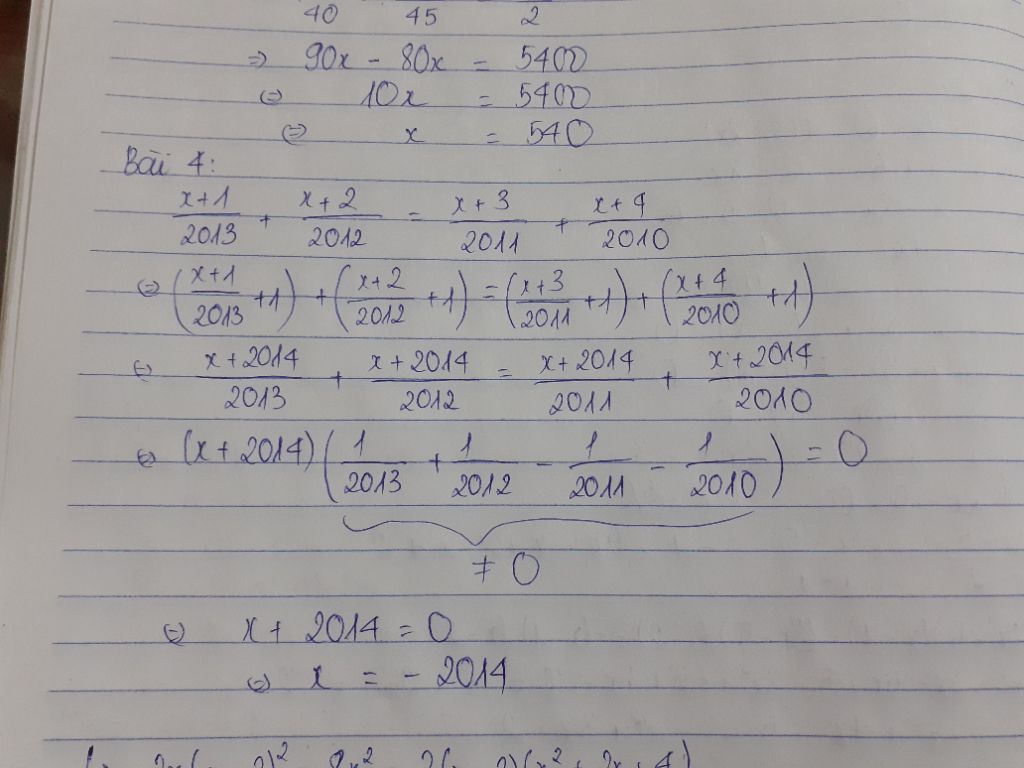 40 45 2
⇒ 90x - 80x = 5400
⇔ 10x = 5400
⇔ x = 540
Bài 4:
x+1/2013 + x+2/2012 = x+3/2011 + x+4/2010
⇔ (x+1/2013 +1) + (x+2/2012 +1) = (x+3/2011 +1) + (x+4/2010 +1)
⇔ x+2014/2013 + x+2014/2012 = x+2014/2011 + x+2014/2010
⇔ (x+2014)(1/2013 + 1/2012 - 1/2011 - 1/2010) = 0
≠ 0
⇔ x + 2014 = 0
⇔ x = - 2014